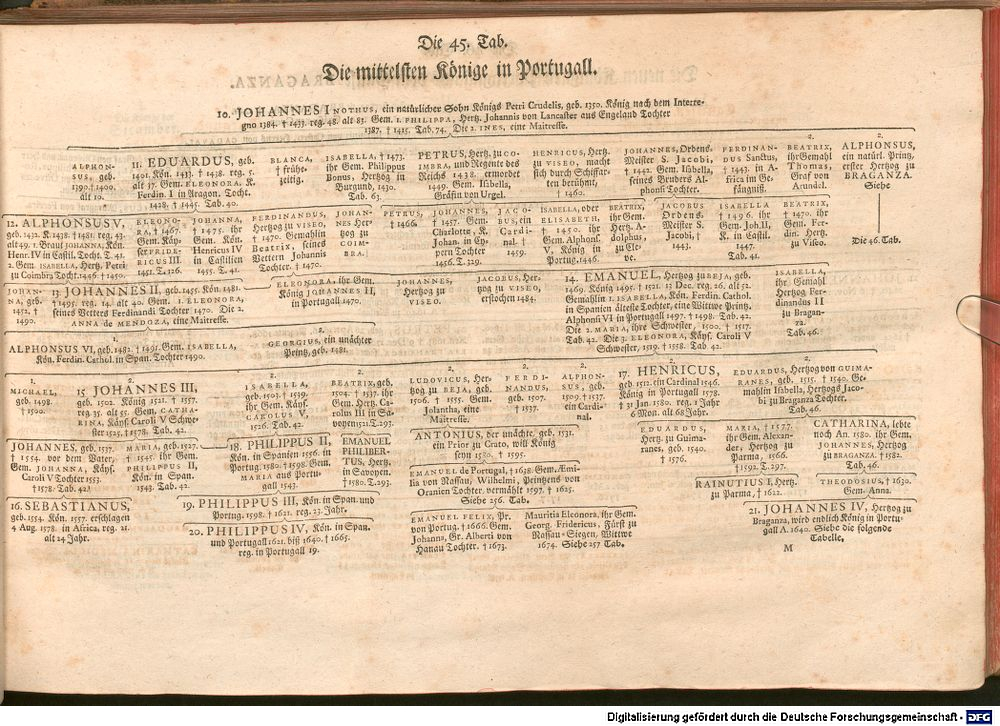 Die 45. Tab.
Die mittelsten Könige in Portugall.
10. JOHANNES I NOTHUS, ein natürlicher Sohn Königs Petri Crudelis, geb. 1350. König nach dem Interre-
gno 1384. † 1433. reg. 48. alt 83. Gem. 1. PHILIPPA, Hertz. Johannis von Lancaster aus Engeland Tochter
1387. † 1415. Tab. 74. Die 2. INES, eine Maitresse.
ALPHON-
SUS, geb.
1390. † 1400.
alt 10.
11. EDUARDUS, geb.
1401. Kön. 1433. † 1438. reg. 5.
alt 37. Gem. ELEONORA, K.
Ferdin. I in Aragon. Tocht.
1428. † 1445. Tab. 40.
BLANCA,
† frühe-
zeitig.
ISABELLA, † 1473.
ihr Gem. Philippus
Bonus, Hertzog in
Burgund, 1430.
Tab. 63.
PETRUS, Hertz. zu CO-
IMBRA, und Regente des
Reichs 1438. ermordet
1449. Gem. Isabella,
Gräfin von Urgel.
HENRICUS, Hertz.
zu VISEO, macht
sich durch Schiffar-
ten berühmt,
† 1460.
JOHANNES, Ordens-
Meister S. Jacobi,
† 1442. Gem. Isabella,
seines Bruders Al-
phonsi Tochter.
FERDINAN-
DUS Sanctus,
† 1443. in A-
frica im Ge-
fängniß.
2.
BEATRIX,
ihr Gemahl
Thomas,
Graf von
Arundel.
2.
ALPHONSUS,
ein natürl. Printz,
erster Hertzog zu
BRAGANZA.
Siehe
Die 46. Tab.
12. ALPHONSUS V,
geb. 1432. K. 1438. † 1481. reg. 43.
alt 49. 1. Braut JOHANNA, Kön.
Henr. IV in Castil. Tocht. T. 41.
2. Gem. ISABELLA, Hertz. Petri
zu Coimbra Tocht. 1446. † 1450.
ELEONO-
RA, † 1467.
ihr Gem. Käy-
ser FRIDE-
RICUS III.
1451. T. 126.
JOHANNA,
† 1475. ihr
Gem. Kön.
Henricus IV
in Castilien
1455. T. 41.
FERDINANDUS,
Hertzog zu VISEO,
† 1470. Gemahlin
Beatrix, seines
Vettern Johannis
Tochter. † 1470.
JOHAN-
NES Her-
tzog zu
COIM-
BRA.
PETRUS,
† 1466.
JOHANNES,
† 1457. Gem.
Charlotte, K.
Johan. in Cy-
pern Tochter
1456. T. 329.
JACO-
BUS, ein
Cardi-
nal. †
1459.
ISABELLA, oder
ELISABETH,
† 1450. ihr
Gem. Alphons.
V, König in
Portug. 1446.
BEATRIX,
ihr Gem.
Hertz. A-
dolphus,
zu Cle-
ve.
JACOBUS
Ordens-
Meister S.
Jacobi,
† 1443.
ISABELLA
† 1496. ihr
Gem. Joh. II,
K. in Castil.
1447.
Tab. 41.
BEATRIX,
† 1470. ihr
Gem. Fer-
din. Hertz.
zu Viseo.
JOHAN-
NA, geb.
1452. †
1490.
13. JOHANNES II, geb. 1455. Kön. 1481.
† 1495. reg. 14. alt 40. Gem. 1. ELEONORA,
seines Vettern Ferdinandi Tochter 1470. Die 2.
ANNA de MENDOZA, eine Maitresse.
ELEONORA, ihr Gem.
König JOHANNES II,
in Portugall 1470.
JOHANNES,
Hertzog zu
VISEO.
JACOBUS, Her-
tzog zu VISEO,
erstochen 1484.
14. EMANUEL, Hertzog zu BEJA, geb.
1469. König 1495. † 1521. 13 Dec. reg. 26. alt 52.
Gemahlin 1. ISABELLA, Kön. Ferdin. Cathol.
in Spanien älteste Tochter, eine Wittwe Printz.
Alphonsi VI in Portugall 1497. † 1498. Tab. 42.
Die 2. MARIA, ihre Schwester, 1500. † 1517.
Tab. 42. Die 3. ELEONORA, Käys. Caroli V
Schwester, 1519. † 1558. Tab. 42.
ISABELLA,
ihr Gemahl
Hertzog Fer-
dinandus II
zu Bragan-
za.
Tab. 46.
1.
ALPHONSUS VI, geb. 1482. † 1491. Gem. ISABELLA,
Kön. Ferdin. Cathol. in Span. Tochter 1490.
2.
GEORGIUS, ein unächter
Printz, geb. 1481.
1.
MICHAEL,
geb. 1498.
† 1500.
2.
15. JOHANNES III,
geb. 1502. König 1521. † 1557.
reg. 35. alt 55. Gem. CATHA-
RINA, Käys. Caroli V Schwe-
ster 1525. † 1578. Tab. 42.
2.
ISABELLA,
geb. 1503. † 1539.
ihr Gem. Käys.
CAROLUS V,
1526. Tab. 42.
2.
BEATRIX, geb.
1504. † 1537. ihr
Gem. Hertz. Ca-
rolus III in Sa-
voyen 1521. T. 293.
2.
LUDOVICUS, Her-
tzog zu BEJA, geb.
1506. † 1555. Gem.
Jolantha, eine
Maitresse.
2.
FERDI-
NANDUS,
geb. 1507.
† 1537.
2.
ALPHON-
SUS, geb.
1509. † 1537.
ein Cardi-
nal.
2.
17. HENRICUS,
geb. 1512. ein Cardinal 1546.
† 31 Jan. 1580. reg. 1 Jahr
6 Mon. alt 68 Jahr.
2.
EDUARDUS, Hertzog von GUIMA-
RANES, geb. 1515. † 1540. Ge-
mahlin Isabella, Hertzogs Jaco-
bi zu Braganza Tochter.
Tab. 46.
JOHANNES, geb. 1537.
† 1554. vor dem Vater,
Gem. JOHANNA, Käys.
Caroli V Tochter 1553.
† 1578. Tab. 42.
MARIA, geb. 1527.
† 1545. ihr Gem.
PHILIPPUS II,
Kön. in Span.
1543. Tab. 42.
18. PHILIPPUS II,
Kön. in Spanien 1556. in
Portug. 1580. † 1598. Gem.
MARIA aus Portu-
gall 1543.
EMANUEL
PHILIBER-
TUS, Hertz.
in Savoyen.
† 1580. T. 293.
ANTONIUS, der unächte, geb. 1531.
ein Prior zu Crato, will König
seyn 1580. † 1595.
EDUARDUS,
Hertz. zu Guima-
ranes, geb. 1540.
† 1576.
MARIA, † 1577.
ihr Gem. Alexan-
der, Hertzog zu
Parma, 1566.
† 1592. T. 297.
CATHARINA, lebte
noch An. 1580. ihr Gem.
JOHANNES, Hertzog
zu BRAGANZA. † 1582.
Tab. 46.
EMANUEL de Portugal, † 1638. Gem. Emi-
lia von Nassau, Wilhelmi, Printzens von
Oranien Tochter, vermählt 1597. † 1625.
Siehe 256. Tab.
RAINUTIUS I, Hertz.
zu Parma, † 1622.
THEODOSIUS, † 1630.
Gem. Anna.
16. SEBASTIANUS,
geb. 1554. Kön. 1557. erschlagen
4 Aug. 1578. in Africa, reg. 21.
alt 24 Jahr.
19. PHILIPPUS III, Kön. in Span. und
Portug. 1598. † 1621. reg. 23. Jahr.
20. PHILIPPUS IV, Kön. in Span.
und Portugall 1621. biß 1640. † 1665.
reg. in Portugall 19.
EMANUEL FELIX, Pr.
von Portug. † 1666. Gem.
Johanna, Gr. Alberti von
Hanau Tochter. † 1673.
Mauritia Eleonora, ihr Gem.
Georg. Fridericus, Fürst zu
Nassau-Siegen, Wittwe
1674. Siehe 257 Tab.
21. JOHANNES IV, Hertzog zu
Braganza, wird endlich König in Portu-
gall A. 1640. Siehe die folgende
Tabelle.
M
Digitalisierung gefördert durch die Deutsche Forschungsgemeinschaft - DFG